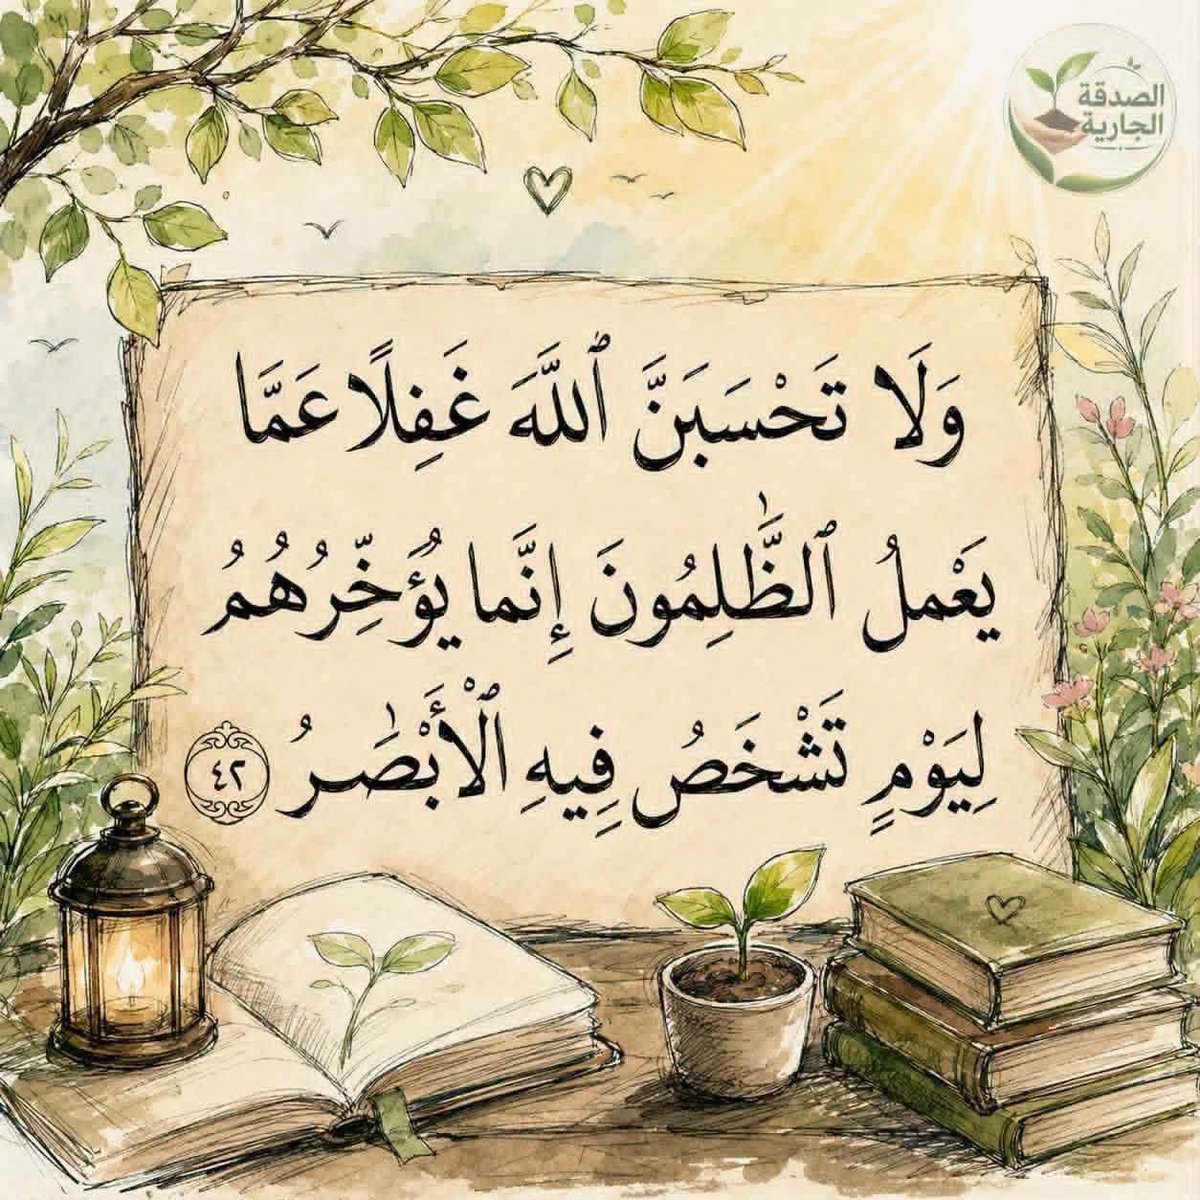 الصدقة
الجارية
وَلَا تَحْسَبَنَّ ٱللَّهَ غَٰفِلًا عَمَّا
يَعْمَلُ ٱلظَّٰلِمُونَ إِنَّمَا يُؤَخِّرُهُمْ
لِيَوْمٍ تَشْخَصُ فِيهِ ٱلْأَبْصَٰرُ ٤٢